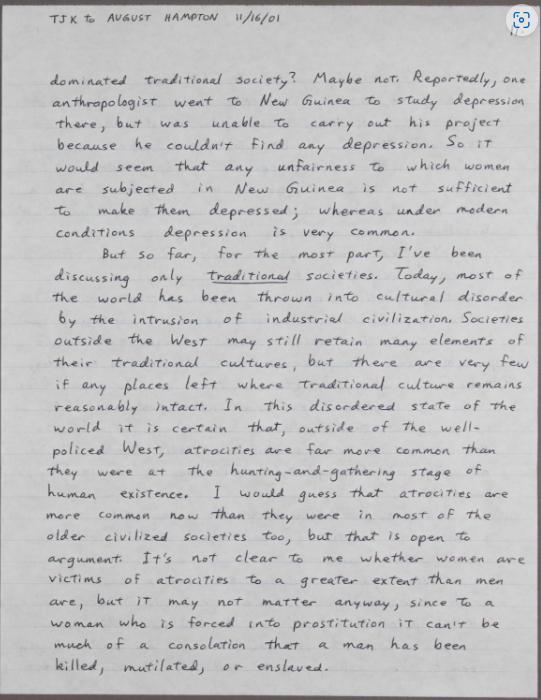 TJK to AUGUST HAMPTON 11/16/01
dominated traditional society? Maybe not. Reportedly, one
anthropologist went to New Guinea to study depression
there, but was unable to carry out his project
because he couldn't find any depression. So it
would seem that any unfairness to which women
are subjected in New Guinea is not sufficient
to make them depressed; whereas under modern
conditions depression is very common.
But so far, for the most part, I've been
discussing only traditional societies. Today, most of
the world has been thrown into cultural disorder
by the intrusion of industrial civilization. Societies
outside the West may still retain many elements of
their traditional cultures, but there are very few
if any places left where traditional culture remains
reasonably intact. In this disordered state of the
world it is certain that, outside of the well-
policed West, atrocities are far more common than
they were at the hunting-and-gathering stage of
human existence. I would guess that atrocities are
more common now than they were in most of the
older civilized societies too, but that is open to
argument. It's not clear to me whether women are
victims of atrocities to a greater extent than men
are, but it may not matter anyway, since to a
woman who is forced into prostitution it can't be
much of a consolation that a man has been
killed, mutilated, or enslaved.